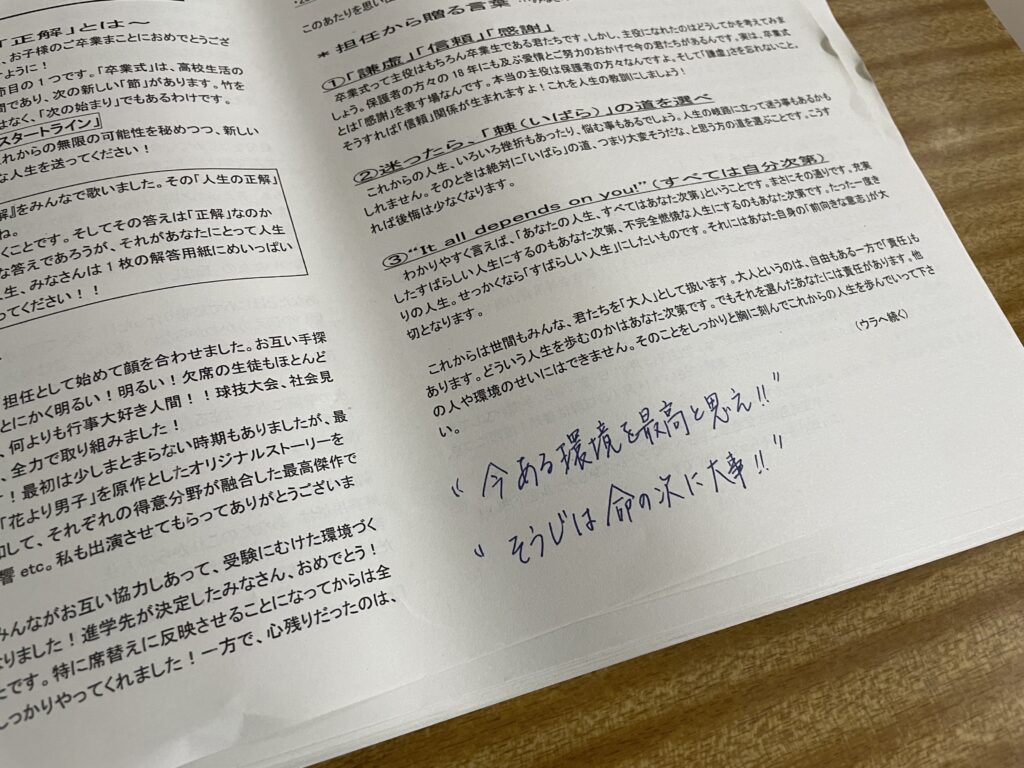 「正解」とは～
、お子様のご卒業まことにおめでとうござ
ように！
節目の１つです。「卒業式」は、高校生活の
間であり、次の新しい「節」があります。竹を
はなく、「次の始まり」でもあるわけです。
スタートライン」
これからの無限の可能性を秘めつつ、新しい
な人生を送ってください！
解』をみんなで歌いました。その「人生の正解」
ね。
くことです。そしてその答えは「正解」なのか
な答えであろうが、それがあなたにとって人生
人生、みなさんは１枚の解答用紙にめいっぱい
ってください！！
担任として始めて顔を合わせました。お互い手探
とにかく明るい！明るい！欠席の生徒もほとんど
、何よりも行事大好き人間！！球技大会、社会見
、全力で取り組みました！
！最初は少しまとまらない時期もありましたが、最
「花より男子」を原作としたオリジナルストーリーを
加して、それぞれの得意分野が融合した最高傑作で
響 etc。私も出演させてもらってありがとうございま
みんながお互い協力しあって、受験にむけた環境づく
なりました！進学先が決定したみなさん、おめでとう！
たです。特に席替えに反映させることになってからは全
しっかりやってくれました！一方で、心残りだったのは、
このあたりを思い出
＊担任から贈る言葉
①「謙虚」「信頼」「感謝」
卒業式って主役はもちろん卒業生である君たちです。しかし、主役になれたのはどうしてかを考えてみま
しょう。保護者の方々の 18 年にも及ぶ愛情とご努力のおかげで今の君たちがあるんです。実は、卒業式
とは「感謝」を表す場なんです。本当の主役は保護者の方々なんですよ。そして「謙虚」さを忘れないこと、
そうすれば「信頼」関係が生まれますよ！これを人生の教訓にしましょう！
②迷ったら、「棘（いばら）」の道を選べ
これからの人生、いろいろ挫折もあったり、悩む事もあるでしょう。人生の岐路に立って迷う事もあるかも
しれません。そのときは絶対に「いばら」の道、つまり大変そうだな、と思う方の道を選ぶことです。こうす
れば後悔は少なくなります。
③“It all depends on you!”（すべては自分次第）
わかりやすく言えば、「あなたの人生、すべてはあなた次第」ということです。まさにその通りです。充実
したすばらしい人生にするのもあなた次第、不完全燃焼な人生にするのもあなた次第です。たった一度き
りの人生。せっかくなら「すばらしい人生」にしたいものです。それにはあなた自身の「前向きな意志」が大
切となります。
これからは世間もみんな、君たちを「大人」として扱います。大人というのは、自由もある一方で「責任」も
あります。どういう人生を歩むのかはあなた次第です。でもそれを選んだあなたには責任があります。他
の人や環境のせいにはできません。そのことをしっかりと胸に刻んでこれからの人生を歩んでいって下さ
い。
（ウラへ続く）
“今ある環境を最高と思え!!”
“そうじは命の次に大事!!”